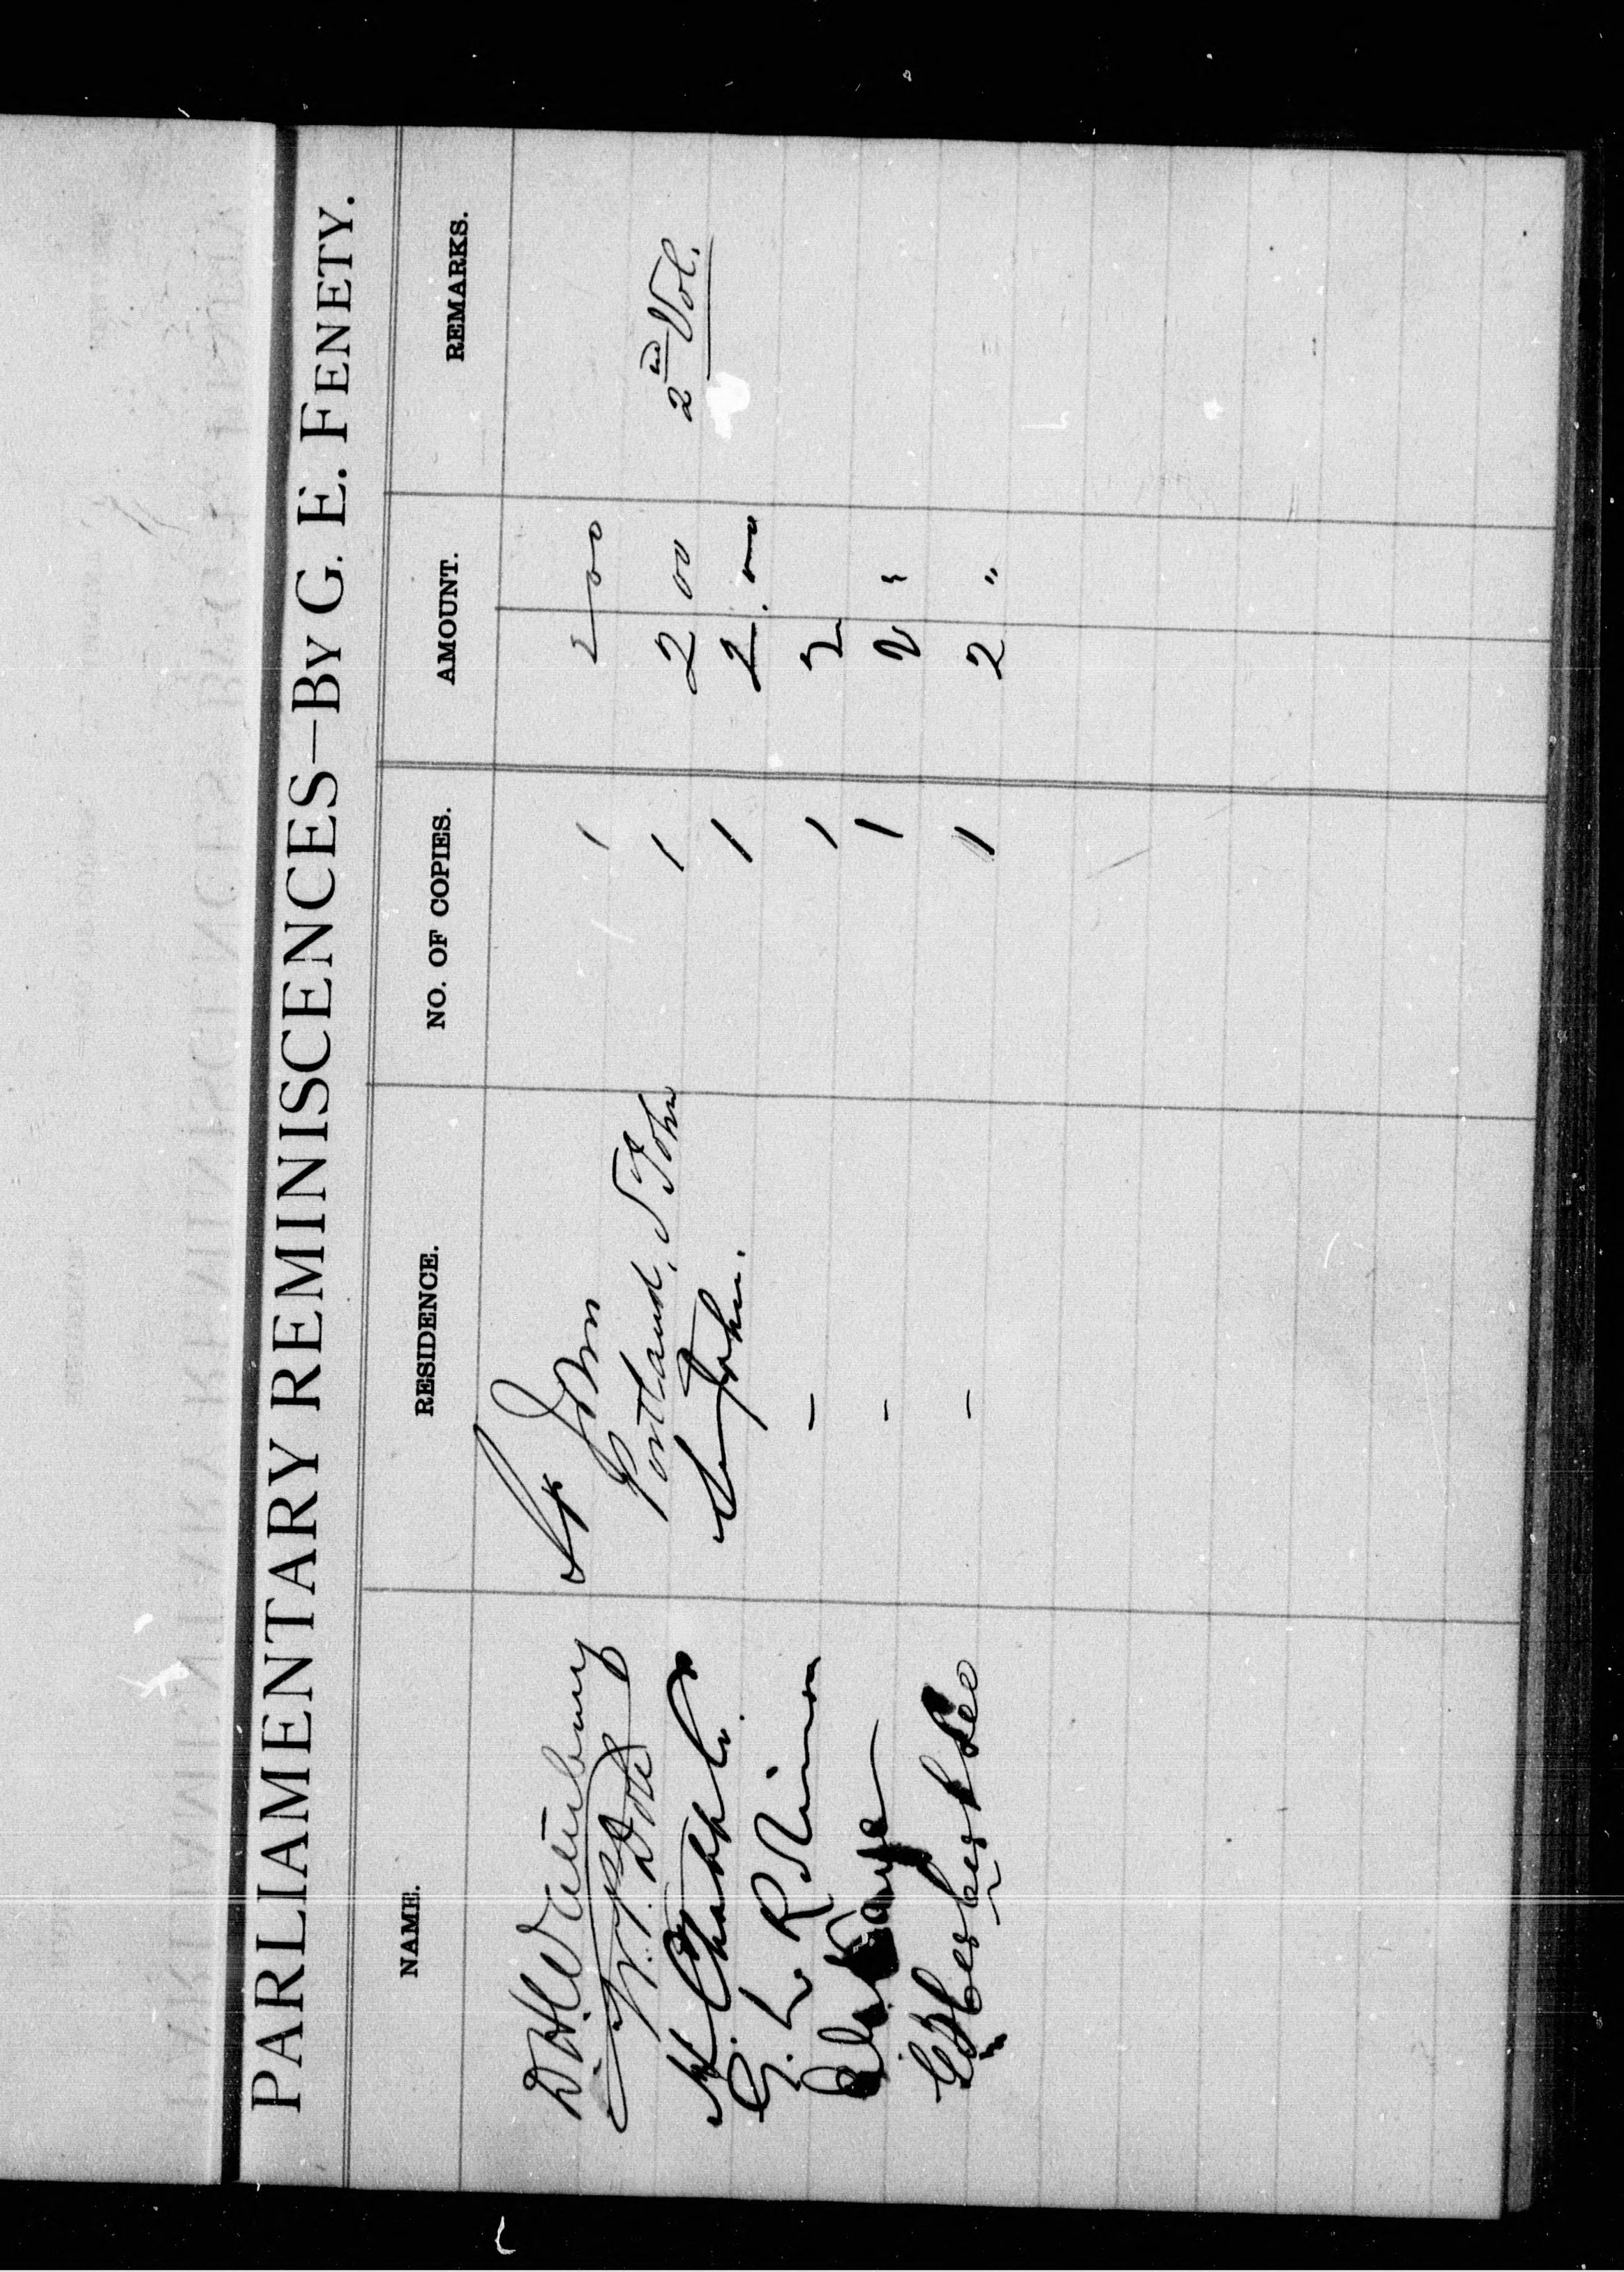 PARLIAMENTARY REMINISCENCES—BY G. E. FENETY.
NAME. RESIDENCE. NO. OF COPIES. AMOUNT. REMARKS.
D. H. Waterbury St John 1 2 00
W. P. Dole Portland, St John 1 2 00 2nd Vol.
H. Chubb & Co. St John. 1 2.00
G. L. Robinson - 1 2
- 1 2 "
G. Herbert Lee - 1 2 "